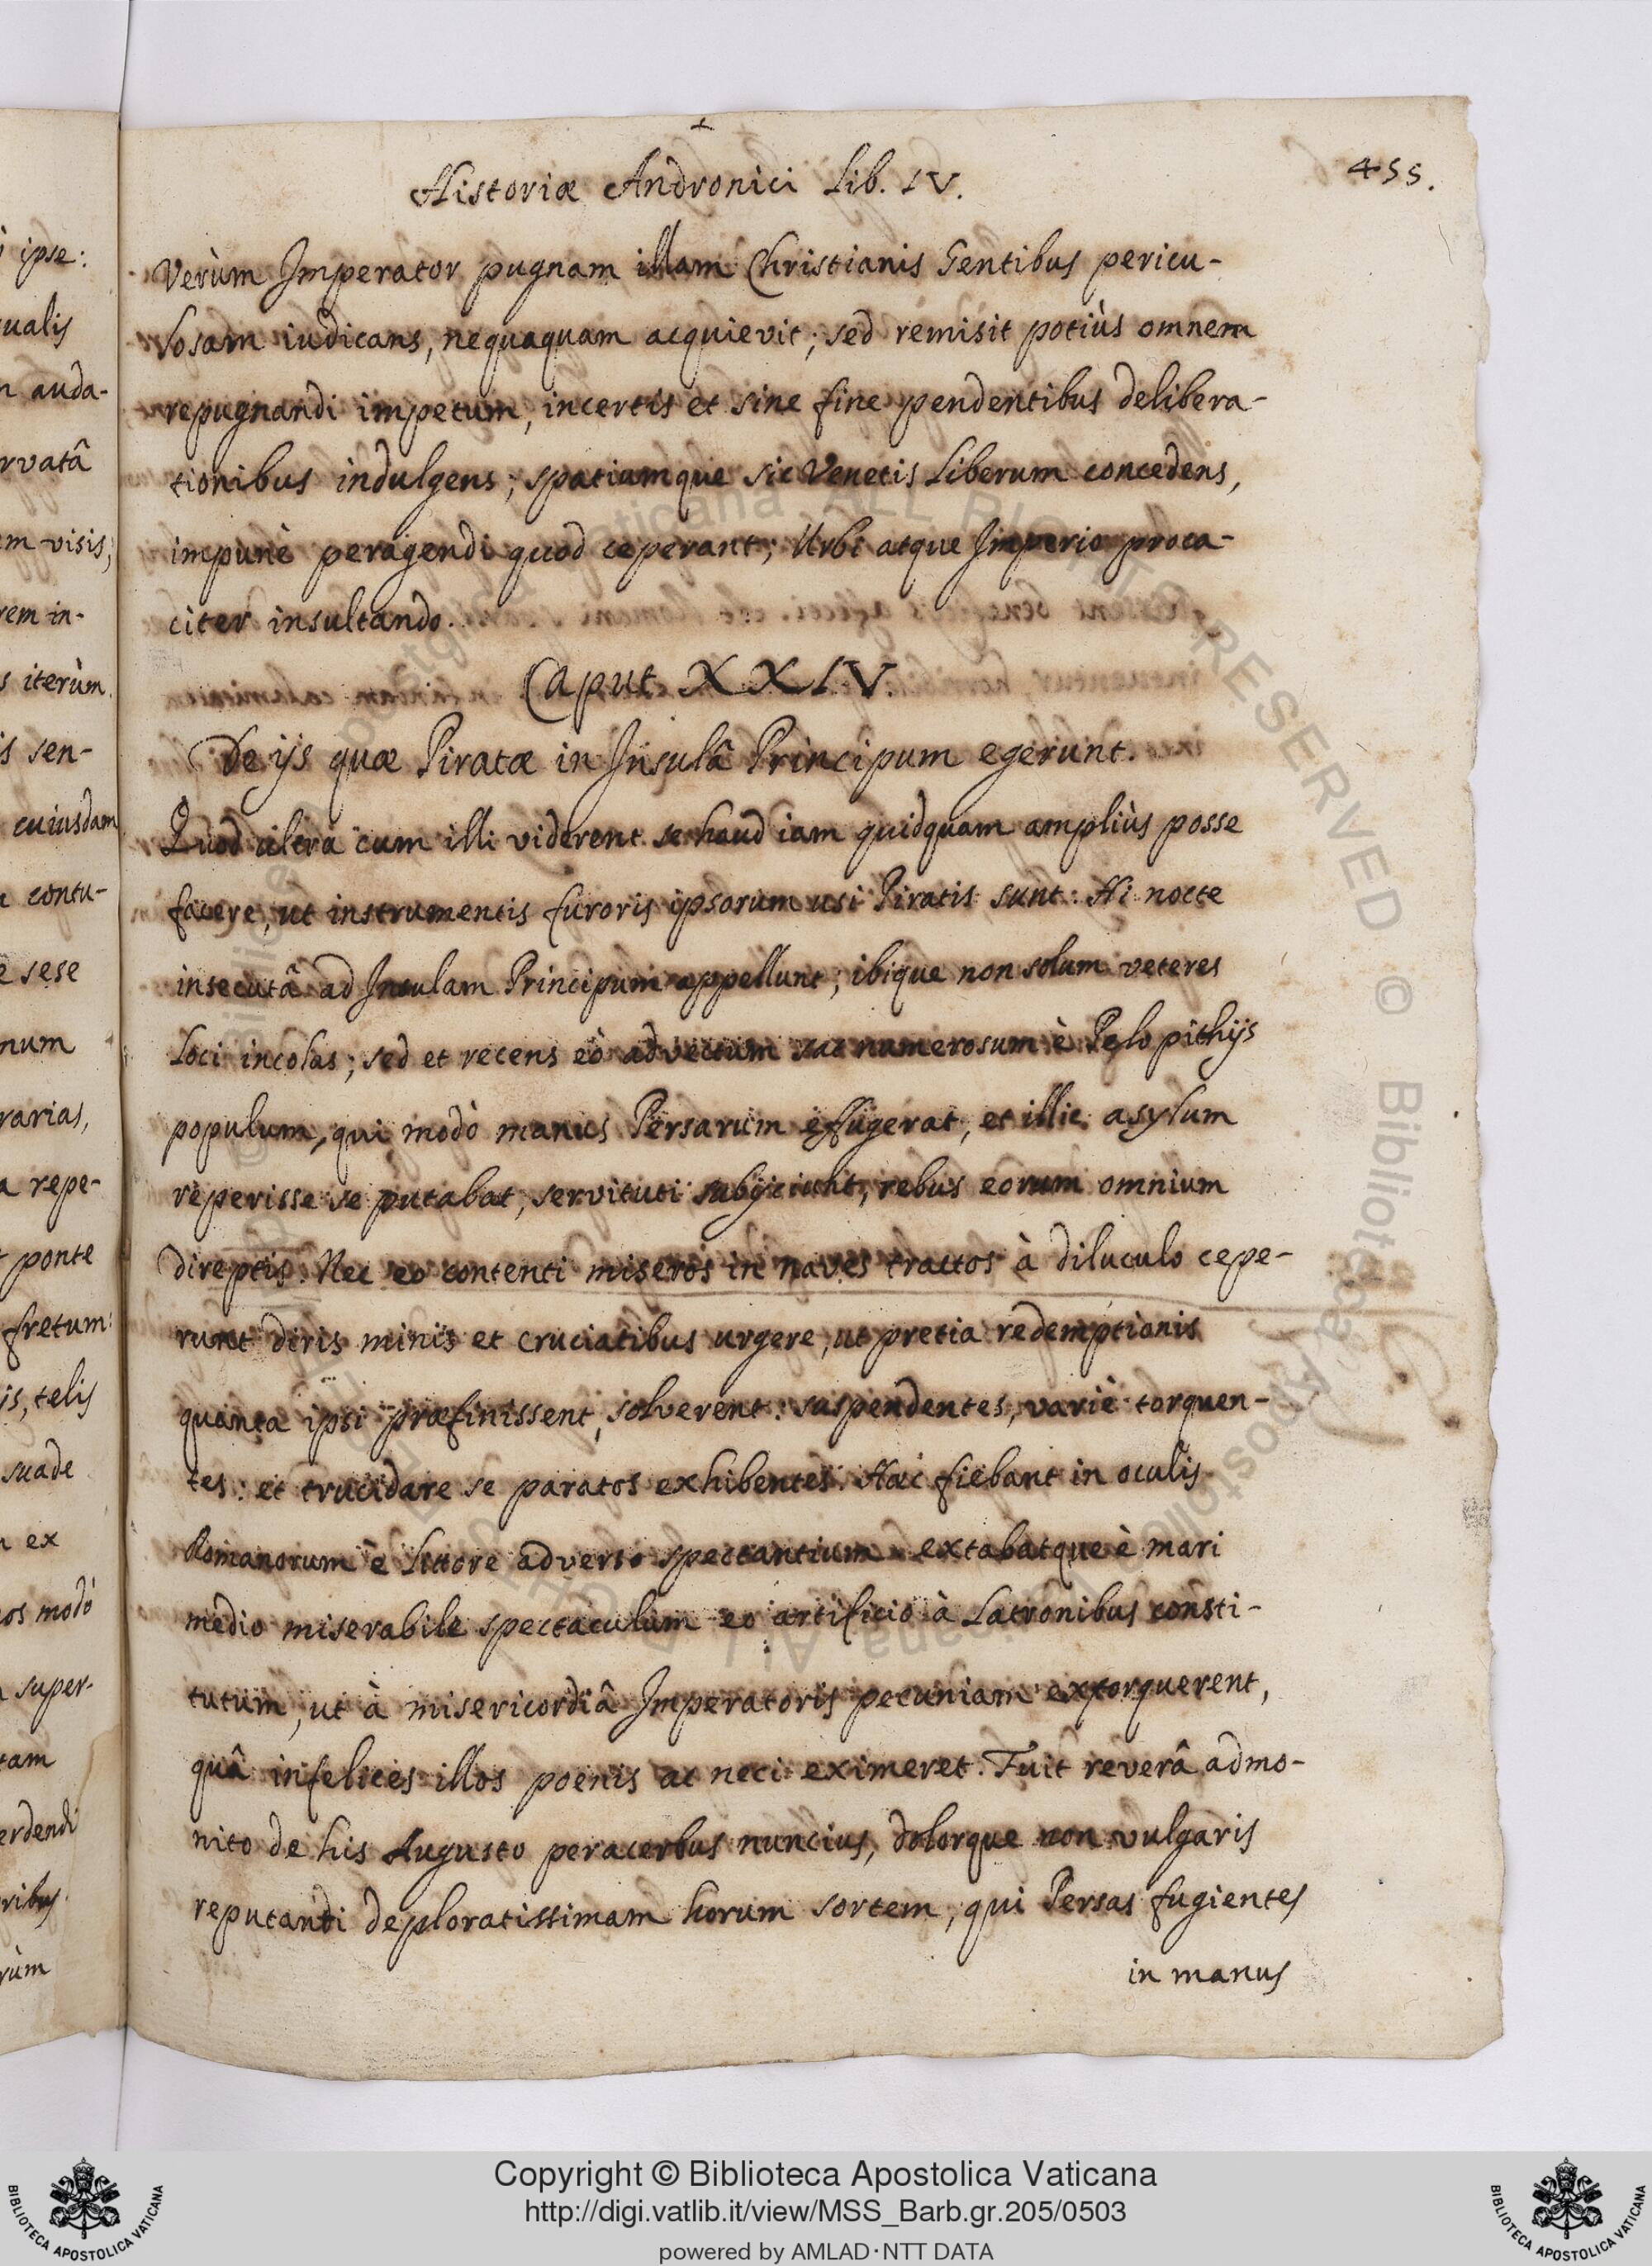 Historiæ Andronici Lib. IV.
455.
Verùm Imperator pugnam illam Christianis Gentibus pericu-
losam iudicans, nequaquam acquievit; sed remisit potiùs omnem
repugnandi impetum, incertis et sine fine pendentibus delibera-
tionibus indulgens; spatiumque sic Venetis Liberum concedens,
impunè peragendi quod ceperant; Urbi atque Imperio proca-
citer insultando.
Caput XXIV.
De ijs quæ Piratæ in Insulâ Principum egerunt.
Quod ultra cum illi viderent se haud iam quidquam ampliùs posse
facere, ut instrumentis furoris ipsorum usi Piratis sunt. Hi nocte
insecutâ ad Insulam Principum appellunt; ibique non solum veteres
Loci incolas; sed et recens eò advectum ac numerosum è Pelopithijs
populum, qui modò manus Persarum effugerat, et illic asylum
reperisse se putabat, servituti subijciunt, rebus eorum omnium
direptis. Nec eo contenti miseros in naves tractos à diluculo cepe-
runt diris minis et cruciatibus urgere, ut pretia redemptionis
quanta ipsi præfinissent, solverent: suspendentes, variè torquen-
tes: et trucidare se paratos exhibentes. Hæc fiebant in oculis
Romanorum è littore adverso spectantium extabatque è mari
medio miserabile spectaculum eo artificio à Latronibus consti-
tutum, ut à misericordiâ Imperatoris pecuniam extorquerent,
quâ infelices illos poenis ac neci eximeret. Fuit reverâ admo-
nito de his Augusto peracerbus nuncius, dolorque non vulgaris
reputandi deploratissimam horum sortem, qui Persas fugientes
in manus
ipse:
ualis
auda-
rvatâ
em visis,
rem in-
s iterùm
is sen-
cuiusdam
contu-
sese
num
rarias,
repe-
ponte
fretum
is, telis
suade
ex
os modò
super-
tam
erdendi
ribus
rùm
Copyright © Biblioteca Apostolica Vaticana
http://digi.vatlib.it/view/MSS_Barb.gr.205/0503
powered by AMLAD·NTT DATA
BIBLIOTECA APOSTOLICA VATICANA
BIBLIOTECA APOSTOLICA VATICANA